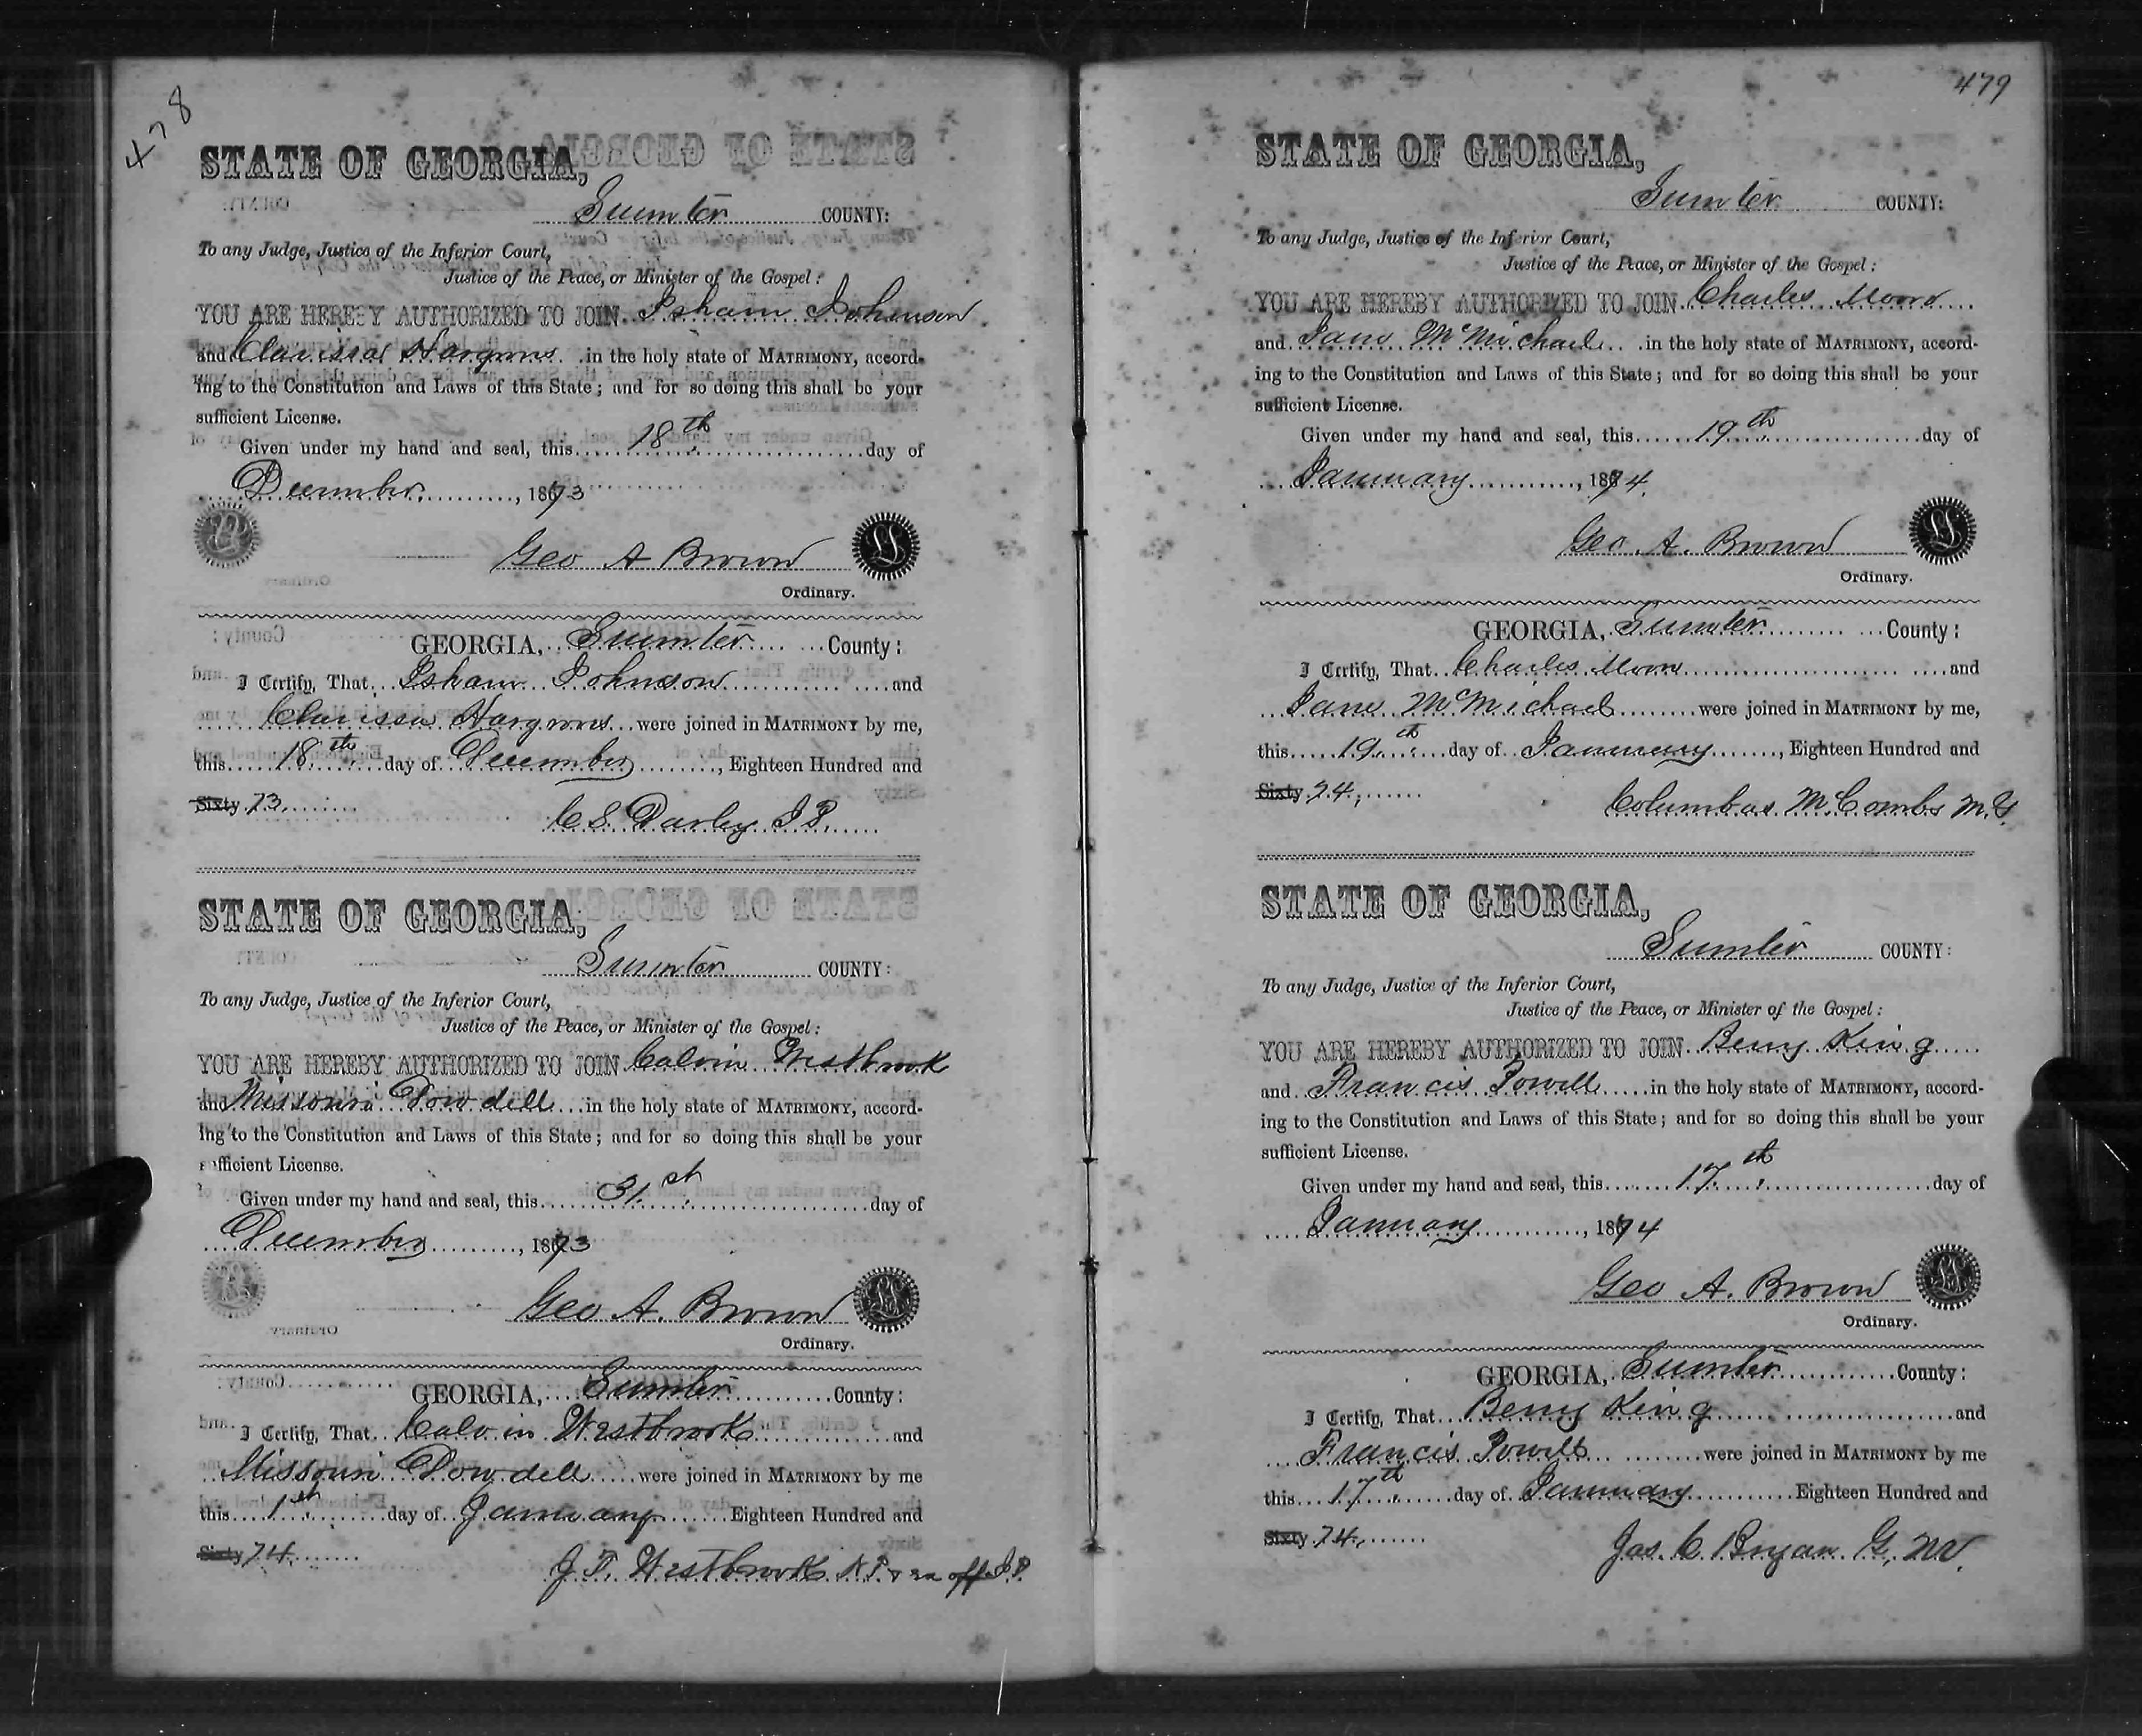 478
STATE OF GEORGIA,
Sumter COUNTY:
To any Judge, Justice of the Inferior Court,
Justice of the Peace, or Minister of the Gospel:
YOU ARE HEREBY AUTHORIZED TO JOIN Isham Johnson
and Clarissa Hargrove in the holy state of MATRIMONY, accord-
ing to the Constitution and Laws of this State; and for so doing this shall be your
sufficient License.
Given under my hand and seal, this 18th day of
December, 1873
Geo A Brown
Ordinary.
GEORGIA, Sumter County:
I Certify, That Isham Johnson and
Clarissa Hargrove were joined in MATRIMONY by me,
this 18th day of December, Eighteen Hundred and
Sixty 73
C S Darley J P
STATE OF GEORGIA,
Sumter COUNTY:
To any Judge, Justice of the Inferior Court,
Justice of the Peace, or Minister of the Gospel:
YOU ARE HEREBY AUTHORIZED TO JOIN Calvin Westbrook
and Missouri Dowdell in the holy state of MATRIMONY, accord-
ing to the Constitution and Laws of this State; and for so doing this shall be your
sufficient License.
Given under my hand and seal, this 31st day of
December, 1873
Geo A. Brown
Ordinary.
GEORGIA, Sumter County:
I Certify, That Calvin Westbrook and
Missouri Dowdell were joined in MATRIMONY by me
this 1st day of January Eighteen Hundred and
Sixty 74
J. T. Westbrook N P & ex off J P
479
STATE OF GEORGIA,
Sumter COUNTY:
To any Judge, Justice of the Inferior Court,
Justice of the Peace, or Minister of the Gospel:
YOU ARE HEREBY AUTHORIZED TO JOIN Charles Moore
and Jane McMichael in the holy state of MATRIMONY, accord-
ing to the Constitution and Laws of this State; and for so doing this shall be your
sufficient License.
Given under my hand and seal, this 19th day of
January, 1874.
Geo. A. Brown
Ordinary.
GEORGIA, Sumter County:
I Certify, That Charles Moore and
Jane McMichael were joined in MATRIMONY by me,
this 19th day of January, Eighteen Hundred and
Sixty 74,
Columbus McCombs M.G.
STATE OF GEORGIA,
Sumter COUNTY:
To any Judge, Justice of the Inferior Court,
Justice of the Peace, or Minister of the Gospel:
YOU ARE HEREBY AUTHORIZED TO JOIN Berry King
and Francis Powell in the holy state of MATRIMONY, accord-
ing to the Constitution and Laws of this State; and for so doing this shall be your
sufficient License.
Given under my hand and seal, this 17th day of
January, 1874
Geo A. Brown
Ordinary.
GEORGIA, Sumter County:
I Certify, That Berry King and
Francis Powell were joined in MATRIMONY by me
this 17th day of January Eighteen Hundred and
Sixty 74,
Jas. C. Bryan G. M.